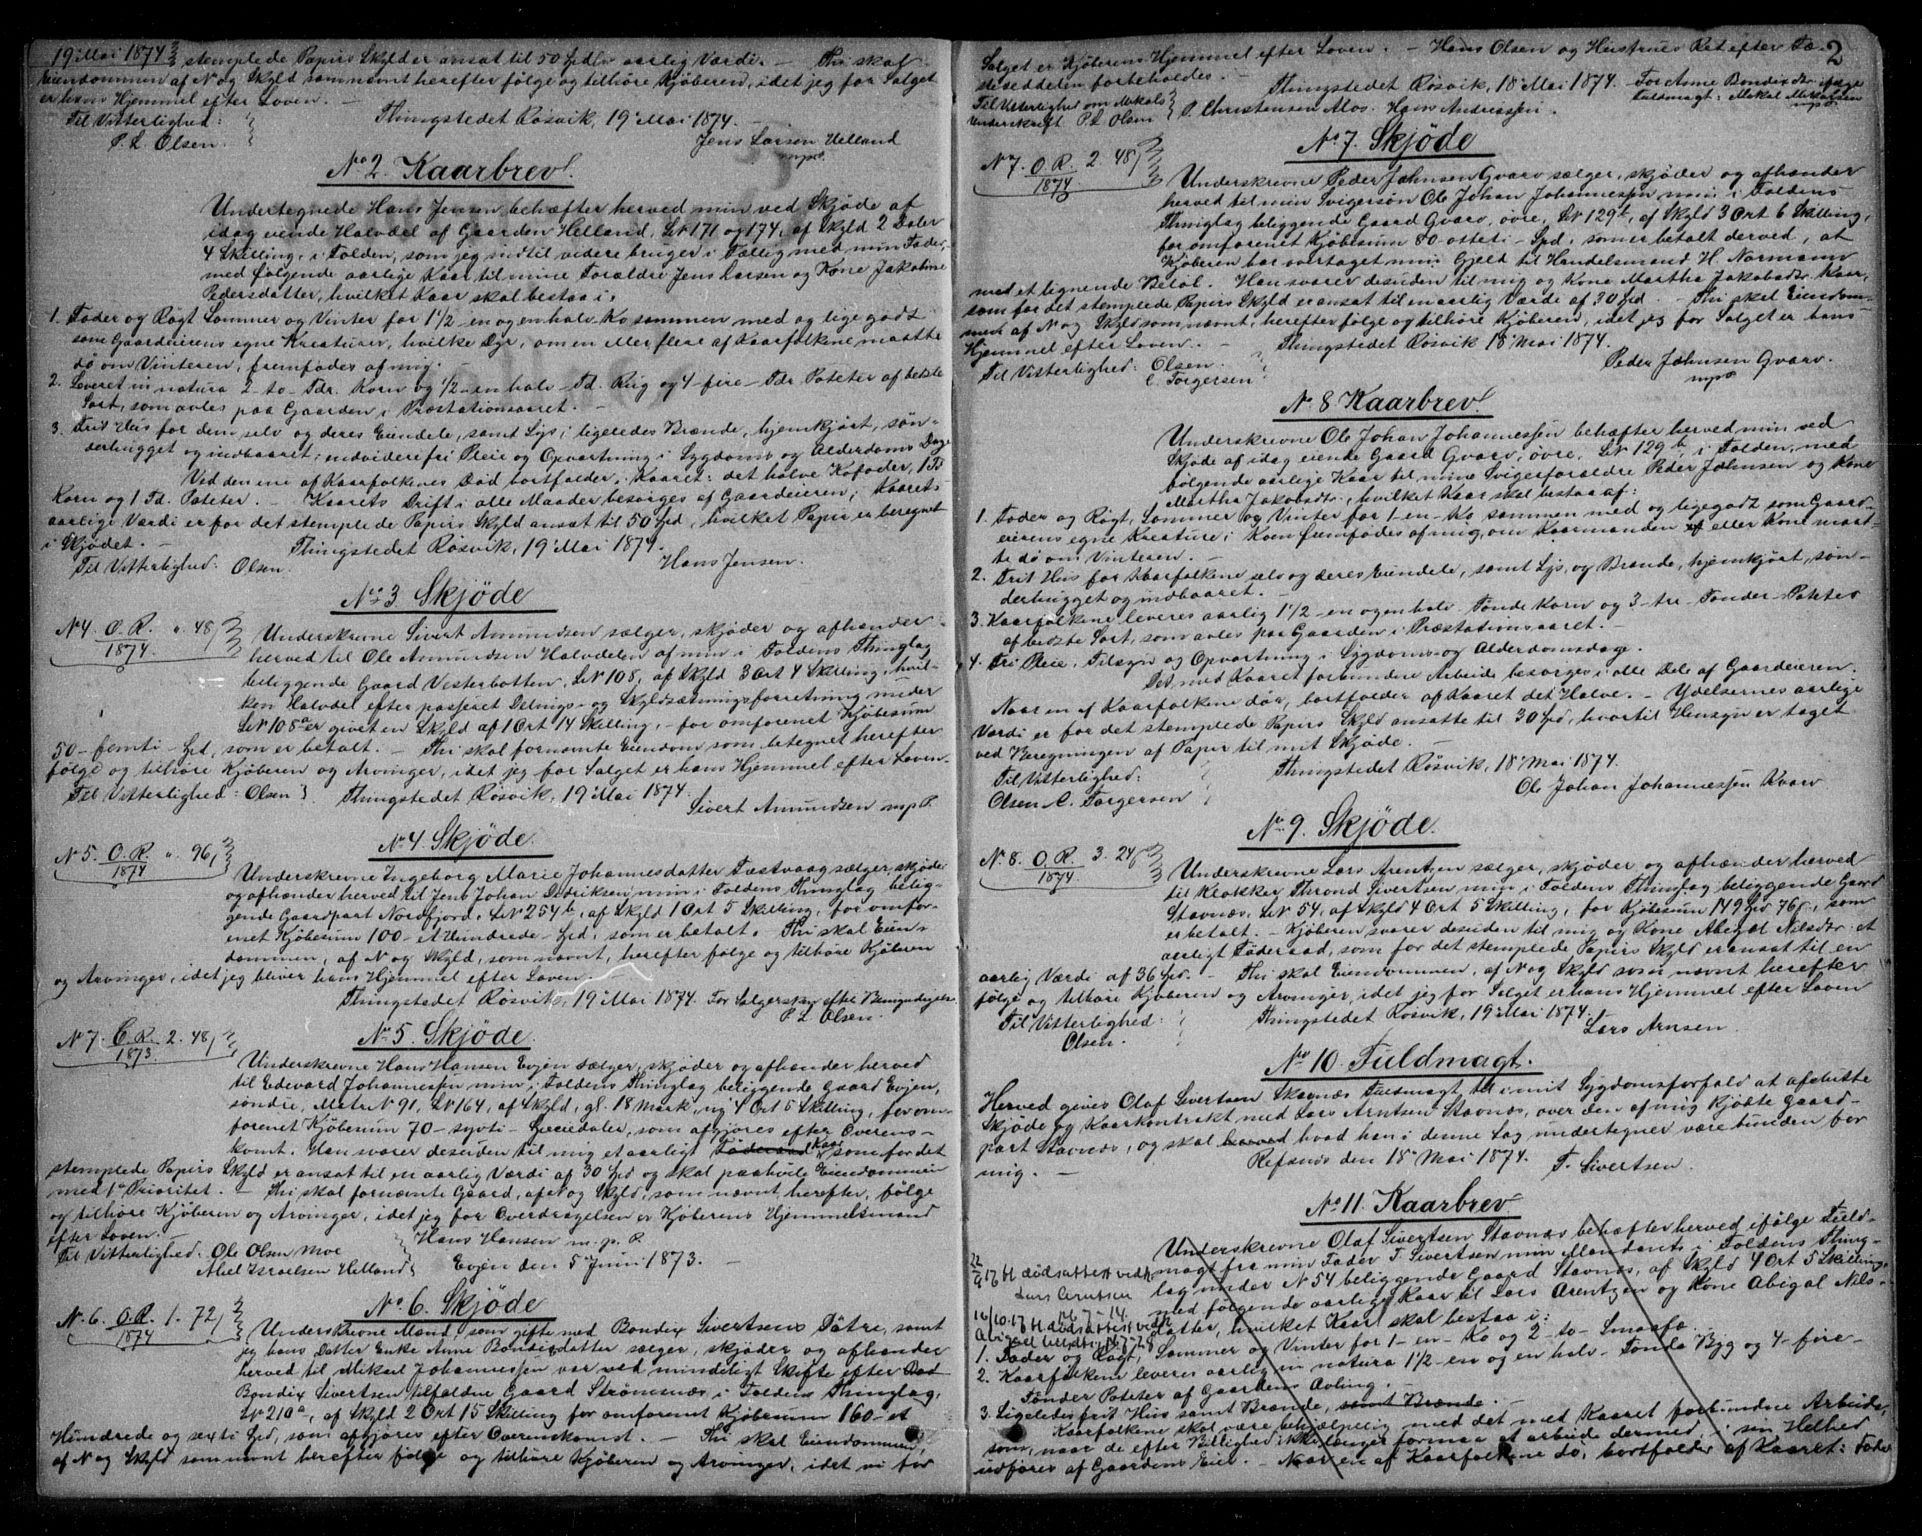 19 Mai 1874 stemplede Papirs Skyld er ansat til 50 Spdlr aarlig Værdi. — Thi skal
Eiendommen af No og Skyld som nævnt herefter følge og tilhöre Kjöberen, idet jeg for Salget
er hans Hjemmel efter Loven. —
Thingstedet Rösvik, 19 Mai 1874.
Til Vitterlighed:
P. L. Olsen.
Jens Larsen Helland
mpP
No 2. Kaarbrev.
Undertegnede Hans Jensen behæfter herved min ved Skjöde af
idag eiende Halvdel af Gaarden Helland, LN 171 og 174, af Skyld 2 Daler
4 Skilling, i Folden, som jeg indtil videre bruger i Fællig med min Fader,
med følgende aarlige Kaar til mine Forældre Jens Larsen og Kone Jakobine
Pedersdatter, hvilket Kaar skal bestaa i:
1. Foder og Rögt Sommer og Vinter for 1 1/2 - en og en halv - Ko sammen med og lige godt
som Gaardeierens egne Kreaturer, hvilke Dyr, om en eller flere af Kaarfolkene maatte
dö om Vinteren, fremfödes af mig.
2. Leveret in natura 2 - to - Tdr. Korn og 1/2 - en halv - Td. Rug og 4 - fire - Tdr Poteter af bedste
Sort, som avles paa Gaarden i Præstationsaaret. —
3. Frit Hus for dem selv og deres Eiendele, samt Lys; ligeledes Brænde, hjemkjørt, søn-
derhugget og indbaaret; endvidere fri Pleie og Opvartning i Sygdoms og Alderdoms Dage
Ved den ene af Kaarfolkenes Død bortfalder af Kaaret: det halve Kofoder, 1 Td
Korn og 1 Td. Poteter. — Kaarets Drift i alle Maader besørges af Gaardeieren; Kaarets
aarlige Værdi er for det stemplede Papirs Skyld ansat til 50 Spd, hvilket Papir er beregnet
i Skjödet. —
Thingstedet Rösvik, 19 Mai 1874.
Til Vitterlighed: Olsen.
Hans Jensen.
No 3 Skjöde
N 4. O.R. " 48 ß
1874.
Underskrevne Sivert Amundsen sælger, skjøder og afhænder
herved til Ole Amundsen Halvdelen af min i Foldens Thinglag
beliggende Gaard Vesterbotten, LN 108, af Skyld 3 Ort 4 Skilling, hvil-
ken Halvdel efter passeret Delnings- og Skyldsætningsforretning under
LN 108a er given en Skyld af 1 Ort 14 Skilling, - for omforenet Kjöbesum
50 - femti - Spd, som er betalt. — Thi skal fornævnte Eiendom som betegnet herefter
følge og tilhöre Kjöberen og Arvinger, idet jeg for Salget er hans Hjemmel efter Loven.
Til Vitterlighed: Olsen
Thingstedet Rösvik, 19 Mai 1874.
Sivert Amundsen mpP.
No 4. Skjöde.
N 5. O.R. " 96 ß
1874
Underskrevne Ingeborg Marie Johannesdatter Tæstvaag sælger, skjöder
og afhænder herved til Jens Johan Didriksen min i Foldens Thinglag belig-
gende Gaardpart Nordfjord, LN 254 b, af Skyld 1 Ort 5 Skilling, for omfor-
enet Kjöbesum 100 - et Hundrede - Spd, som er betalt. Thi skal Eien-
dommen, af N og Skyld, som nævnt, herefter følge og tilhöre Kjöberen
og Arvinger, idet jeg bliver hans Hjemmel efter Loven. —
Thingstedet Rösvik, 19 Mai 1874. For Sælgersken efter Bemyndigelse
P. L. Olsen.
No 5. Skjöde.
N 7. C.R. 2. 48 ß
1873.
Underskrevne Hans Hansen Evjen sælger, skjøder og afhænder herved
til Edevard Johannessen min i Foldens Thinglag beliggende Gaard Evjen,
söndre, Matr N 91, LN 164, af Skyld, gl. 18 Mark, ny 4 Ort 5 Skilling, for om-
forenet Kjöbesum 70 - sytti - Speciedaler, som afgjøres efter Overens-
komst. Han svarer desuden til mig et aarligt Föderaad Kaar som for det
stemplede Papirs Skyld er ansat til en aarlig Værdi af 30 Spd og skal paahvile Eiendommen
med 1ste Prioritet. — Thi skal fornævnte Gaard, af N og Skyld, som nævnt, herefter, følge
og tilhöre Kjöberen og Arvinger, idet jeg for Overdragelsen er Kjöberens Hjemmelsmand
efter Loven. —
Hans Hansen m. p. P.
Til Vitterlighed: Ole Olsen Moe
Abel Israelsen Helland
Evjen den 5 Juni 1873. —
No 6. Skjöde
N 6. O.R. 1. 72 ß
1874
Underskrevne Mand, som gifte med Bondix Sivertsens Døtre, samt
jeg hans Datter Enke Anne Bondixdatter sælger, skjøder og afhænder
herved til Mikael Johannessen vor ved mindeligt Skifte efter Død
Bondix Sivertsen tilfaldne Gaard Strömsnæs, i Foldens Thinglag,
LN 210 a, af Skyld 2 Ort 15 Skilling for omforenet Kjöbesum 160 - et
Hundrede og sexti Spd, som afgjøres efter Overenskomst. — Thi skal Eiendommen,
af N og Skyld som nævnt herefter følge og tilhöre Kjöberen og Arvinger, idet vi for
2
Salget er Kjøberens Hjemmel efter Loven. — Hans Olsen og Hustrues Ret efter Fæ-
steseddelen forbeholdes. —
Thingstedet Rösvik, 18 Mai 1874. For Anne Bondixdtr ifølge
Fuldmagt: Mikal Mikalsen
mpP
Til Vitterlighed om Mikals
Underskrift P. L. Olsen
P. Christensen Mos. Hans Andreassen.
No 7. Skjöde
N 7. O.R. 2. 48 ß
1874
Underskrevne Peder Johnsen Qvarv sælger, skjøder og afhænder
herved til min Svigersön Ole Johan Johannessen min i Foldens
Thinglag beliggende Gaard Qvarv, övre, LN 129 b, af Skyld 3 Ort 6 Skilling,
for omforenet Kjöbesum 80 - otteti - Spd, som er betalt derved, at
Kjøberen har overtaget min Gjeld til Handelsmand H. Normann
med et lignende Beløb. Han svarer desuden til mig og Kone Martha Jakobsdtr Kaar,
som for det stemplede Papirs Skyld er ansat til en aarlig Værdi af 30 Spd. — Thi skal Eiendom-
men af N og Skyld som nævnt, herefter følge og tilhöre Kjöberen, idet jeg for Salget er hans
Hjemmel efter Loven. —
Thingstedet Rösvik 18 Mai 1874.
Til Vitterlighed: Olsen.
C. Torgersen
Peder Johnsen Qvarv.
mpP
No 8 Kaarbrev.
Underskrevne Ole Johan Johannessen behæfter herved min ved
Skjöde af idag eiende Gaard Qvarv, övre, LN 129 b, i Folden, med
følgende aarlige Kaar til mine Svigerforældre Peder Johnsen og Kone
Martha Jakobsdtr, hvilket Kaar skal bestaa af:
1. Foder og Rögt, Sommer og Vinter for 1 - en - Ko sammen med og ligegodt som Gaard-
eierens egne Kreature; Koen fremfødes af mig, om Kaarmanden eller Kone maat-
te dö om Vinteren. —
2. Frit Hus for Kaarfolkene selv og deres Eiendele, samt Lys, og Brænde, hjemkjört, søn-
derhugget og indbaaret. —
3. Kaarfolkene leveres aarlig 1 1/2 - en og en halv - Tønde Korn og 3 - tre - Tønder Poteter
af bedste Sort, som avles paa Gaarden i Præstationsaaret. —
4. Fri Pleie, Tilsyn og Opvartning i Sygdoms- og Alderdomsdage.
Det med Kaaret forbundne Arbeide besørges i alle Dele af Gaardeieren.
Naar en af Kaarfolkene dör, bortfalder af Kaaret det Halve. — Ydelsernes aarlige
Værdi er for det stemplede Papirs Skyld ansatte til 30 Spd, hvortil Hensyn er taget
ved Beregningen af Papir til mit Skjöde. —
Thingstedet Rösvik, 18 Mai 1874.
Til Vitterlighed:
Olsen C. Torgersen
Ole Johan Johannessen Kvarv
No 9. Skjöde.
N. 8. O.R. 3. 24 ß
1874
Underskrevne Lars Arentzen sælger, skjøder og afhænder herved
til Krækker Thrond Sivertsen min i Foldens Thinglag beliggende Gaard
Stavnæs, LN 54, af Skyld 4 Ort 5 Skilling, for Kjøbesum 149 Spd 76 ß, som
er betalt. — Kjöberen svarer desuden til mig og Kone Abegal Nilsdtr: et
aarligt Föderaad, som for det stemplede Papirs Skyld er ansat til en
aarlig Værdi af 36 Spd. — Thi skal Eiendommen, af N og Skyld som nævnt herefter
følge og tilhöre Kjöberen og Arvinger, idet jeg for Salget er hans Hjemmel efter Loven
Thingstedet Rösvik, 19 Mai 1874.
Til Vitterlighed:
Olsen.
Lars Arnsen.
No 10. Fuldmagt.
Herved gives Olaf Sivertsen Skavnæs Fuldmagt til i mit Sygdomsforfald at afslutte
Skjöde og Kaarkontrakt med Lars Arntsen Stavnæs, over den af mig kjöbte Gaard-
part Stavnæs, og skal hvad han i denne Sag undertegner være bunden for
mig. —
Refsnæs den 18 Mai 1874.
T. Sivertsen.
No 11. Kaarbrev
Underskrevne Olaf Sivertsen Stavnæs behæfter herved ifølge Fuld-
magt fra min Fader T. Sivertsen min Mandants i Foldens Thing-
lag under N 54 beliggende Gaard Stavnæs, af Skyld 4 Ort 5 Skilling,
med følgende aarlige Kaar til Lars Arentzen og Kone Abigal Nils-
datter, hvilket Kaar skal bestaa i:
dødsattest vedk
Lars Arntsen
16/10.17
dødsattest vedk
1. Foder og Rögt, Sommer og Vinter for 1 - en - Ko og 2 - to - Smaafæ.
2. Kaarfolkene leveres aarlig in natura 1 1/2 - en og en halv - Tønde Byg og 4 - fire -
Tönder Poteter af Gaardens Avling. —
3. Ligeledes frit Hus samt Brænde, samt Brænde. —
Kaarfolkene skal være behjælpelig med det med Kaaret forbundne Arbeide,
som, naar de efter Billighed ikke længer formaa at arbeide dermed, i sin Helhed
udföres af Gaardens Eier. — Naar en af Kaarfolkene dö, bortfalder af Kaaret: Foder